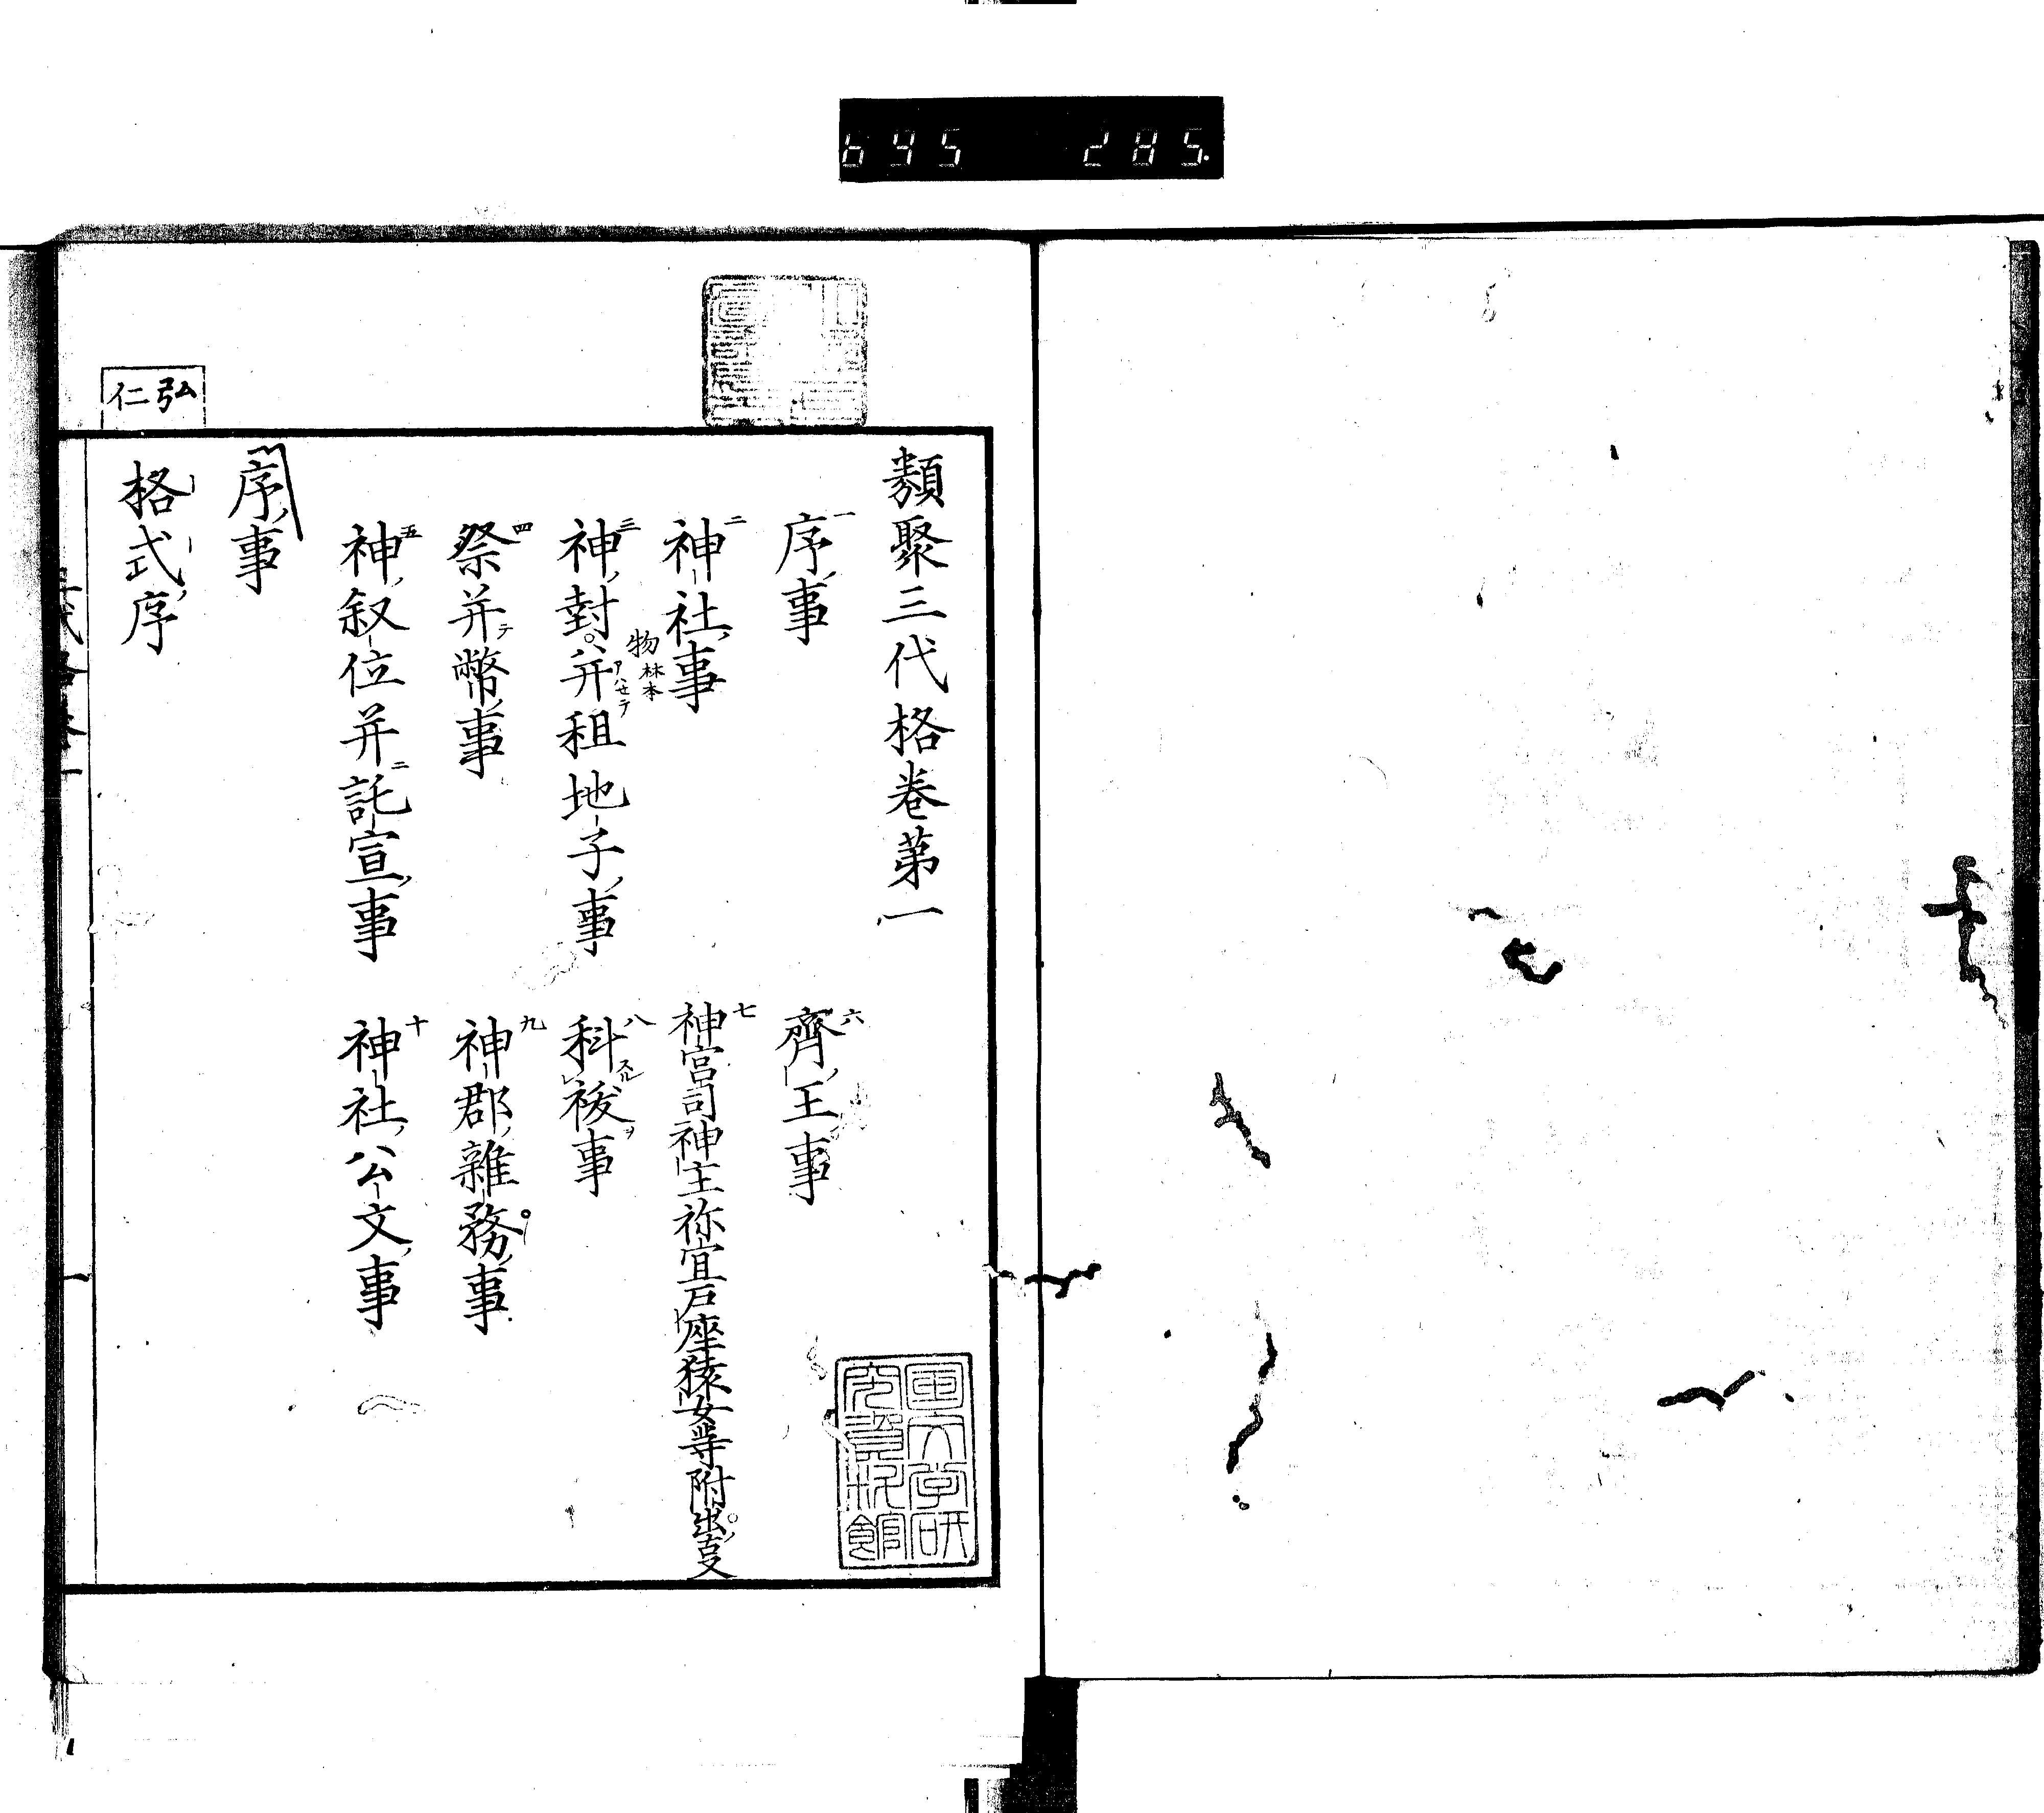 695 285.
類聚三代格卷第一
一 序事
二 神社事
三 神封并租地子事
物 林本
アハセテ
四 祭并テ幣事
五 神叙位并ニ託宣事
六 齊王事
七 神宮司神主祢宜戸座猿女等附出事
八 科スル祓ヲ事
九 神郡雜務事
十 神社公文事
序事
弘仁
格式序
一
国文学研究資料館